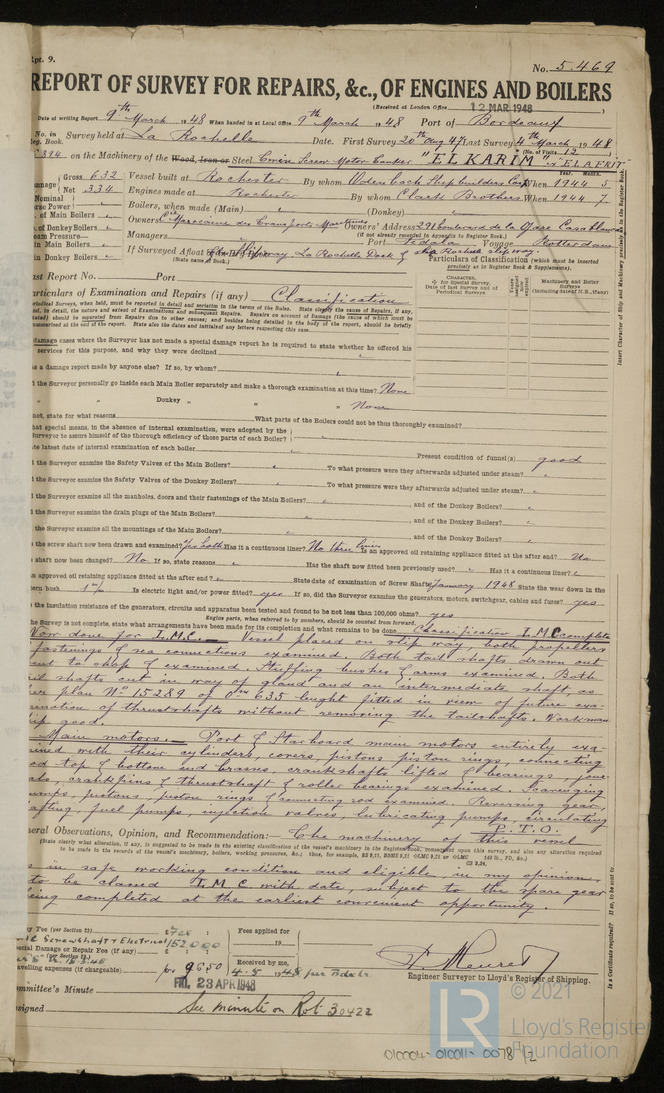 Rpt. 9.
No. 5.469
REPORT OF SURVEY FOR REPAIRS, &c., OF ENGINES AND BOILERS
(Received at London Office 12 MAR 1948
Date of writing Report 9th March 1948 When handed in at Local Office 9th March 1948 Port of Bordeaux
No. in Reg. Book. Survey held at La Rochelle Date. First Survey 20th Aug 47 Last Survey 4th March 1948
(No. of Visits 12)
on the Machinery of the Wood, Iron or Steel Twin Screw Motor Tanker "EL KARIM"
Gross 632 Vessel built at Rochester By whom Odenbach Shipbuilders Corp When 1944 5
Net 334 Engines made at Rochester By whom Clark Brothers When 1944 7
Boilers, when made (Main) (Donkey)
of Main Boilers Owners Cie Marocaine des Transports Maritimes Owners' Address 291 boulevard de la Gare Casablanca
(if not already recorded in Appendix to Register Book.)
of Donkey Boilers Managers Port Fedala Voyage Rotterdam
in Main Boilers If Surveyed Afloat or in Dry Dock La Rochelle Dock & La Rochelle slip way
(State name of Dock.)
in Donkey Boilers Particulars of Classification (which must be inserted precisely as in Register Book & Supplements).
Last Report No. Port
Particulars of Examination and Repairs (if any) Classification
CHARACTER, for Special Survey. Date of last Survey and of Periodical Surveys.
Machinery and Boiler Surveys (including date of N.B., if any)
Periodical Surveys, when held, must be reported in detail and seriatim in the terms of the Rules. State clearly the cause of Repairs, if any,
and, in detail, the nature and extent of Examinations and subsequent Repairs. Repairs on account of Damage (the cause of which must be
stated) should be separated from Repairs due to other causes; and besides being detailed in the body of the report, should be briefly
summarised at the end of the report. State also the dates and initials of any letters respecting this case.
damage cases where the Surveyor has not made a special damage report he is required to state whether he offered his
services for this purpose, and why they were declined
as a damage report made by anyone else? If so, by whom?
the Surveyor personally go inside each Main Boiler separately and make a thorough examination at this time? None
" " Donkey " " " " None
not, state for what reasons What parts of the Boilers could not be thus thoroughly examined?
hat special means, in the absence of internal examination, were adopted by the
urveyor to assure himself of the thorough efficiency of those parts of each Boiler?
te latest date of internal examination of each boiler Present condition of funnel(s) good
the Surveyor examine the Safety Valves of the Main Boilers? To what pressure were they afterwards adjusted under steam?
the Surveyor examine the Safety Valves of the Donkey Boilers? To what pressure were they afterwards adjusted under steam?
the Surveyor examine all the manholes, doors and their fastenings of the Main Boilers? , and of the Donkey Boilers?
the Surveyor examine the drain plugs of the Main Boilers? , and of the Donkey Boilers?
the Surveyor examine all the mountings of the Main Boilers? , and of the Donkey Boilers?
the screw shaft now been drawn and examined? Yes both Has it a continuous liner? No three liners Is an approved oil retaining appliance fitted at the after end? No
shaft now been changed? No If so, state reasons Has the shaft now fitted been previously used? Has it a continuous liner?
an approved oil retaining appliance fitted at the after end? State date of examination of Screw Shaft January 1948 State the wear down in the
stern bush 1 m/m Is electric light and/or power fitted? yes If so, did the Surveyor examine the generators, motors, switchgear, cables and fuses? yes
the insulation resistance of the generators, circuits and apparatus been tested and found to be not less than 100,000 ohms? yes
Engine parts, when referred to by numbers, should be counted from forward.
he Survey is not complete, state what arrangements have been made for its completion and what remains to be done Classification L.M.C complete
Now done for L.M.C. Vessel placed on slip way, both propellers
fastenings & sea connections examined. Both tail shafts drawn out
sent to shop & examined. Stuffing bushes & arms examined. Both
tail shafts cut in way of gland and an intermediate shaft, as
per plan No 15289 of 635 lenght fitted in view of future exa-
mination of thrustshafts without removing the tailshafts. Workman-
ship good.
Main motors. Port & Starboard main motors entirely exa-
mined with their cylinders, covers, pistons piston rings, connecting
rod top & bottom end brasses, crankshafts lifted & bearings, jour-
nals, crankpins & thrustshaft & roller bearings examined. Scavenging
pumps, pistons, piston rings & connecting rod examined. Reversing gear,
shafting, fuel pumps, injection valves, lubricating pumps, circulating
P.T.O.
General Observations, Opinion, and Recommendation:— The machinery of this vessel
(State clearly what alteration, if any, is suggested to be made in the existing classification of the vessel's machinery in the Register Book, consequent upon this survey, and also any alteration required
to be made in the records of the vessel's machinery, boilers, working pressures, &c.; thus, for example,
is in safe working condition and eligible, in my opinion,
to be classed L.M.C with date, subject to the spare gear
being completed at the earliest convenient opportunity.
Survey Fee (per Section 29) Fees applied for
Screwshaft & Electrical 152.000 19
Special Damage or Repair Fee (if any)
(per Section 29) Received by me,
Travelling expenses (if chargeable) 9650 4.5 1948
Engineer Surveyor to Lloyd's Register of Shipping.
Committee's Minute FRI. 23 APR 1948
Assigned See minute on Rpt 30422
Insert Character of Ship and Machinery precisely as in the Register Book.
Is a Certificate required? If so, to be sent to
LR
© 2021
Lloyd's Register
Foundation
010004-010011-0078 1/2